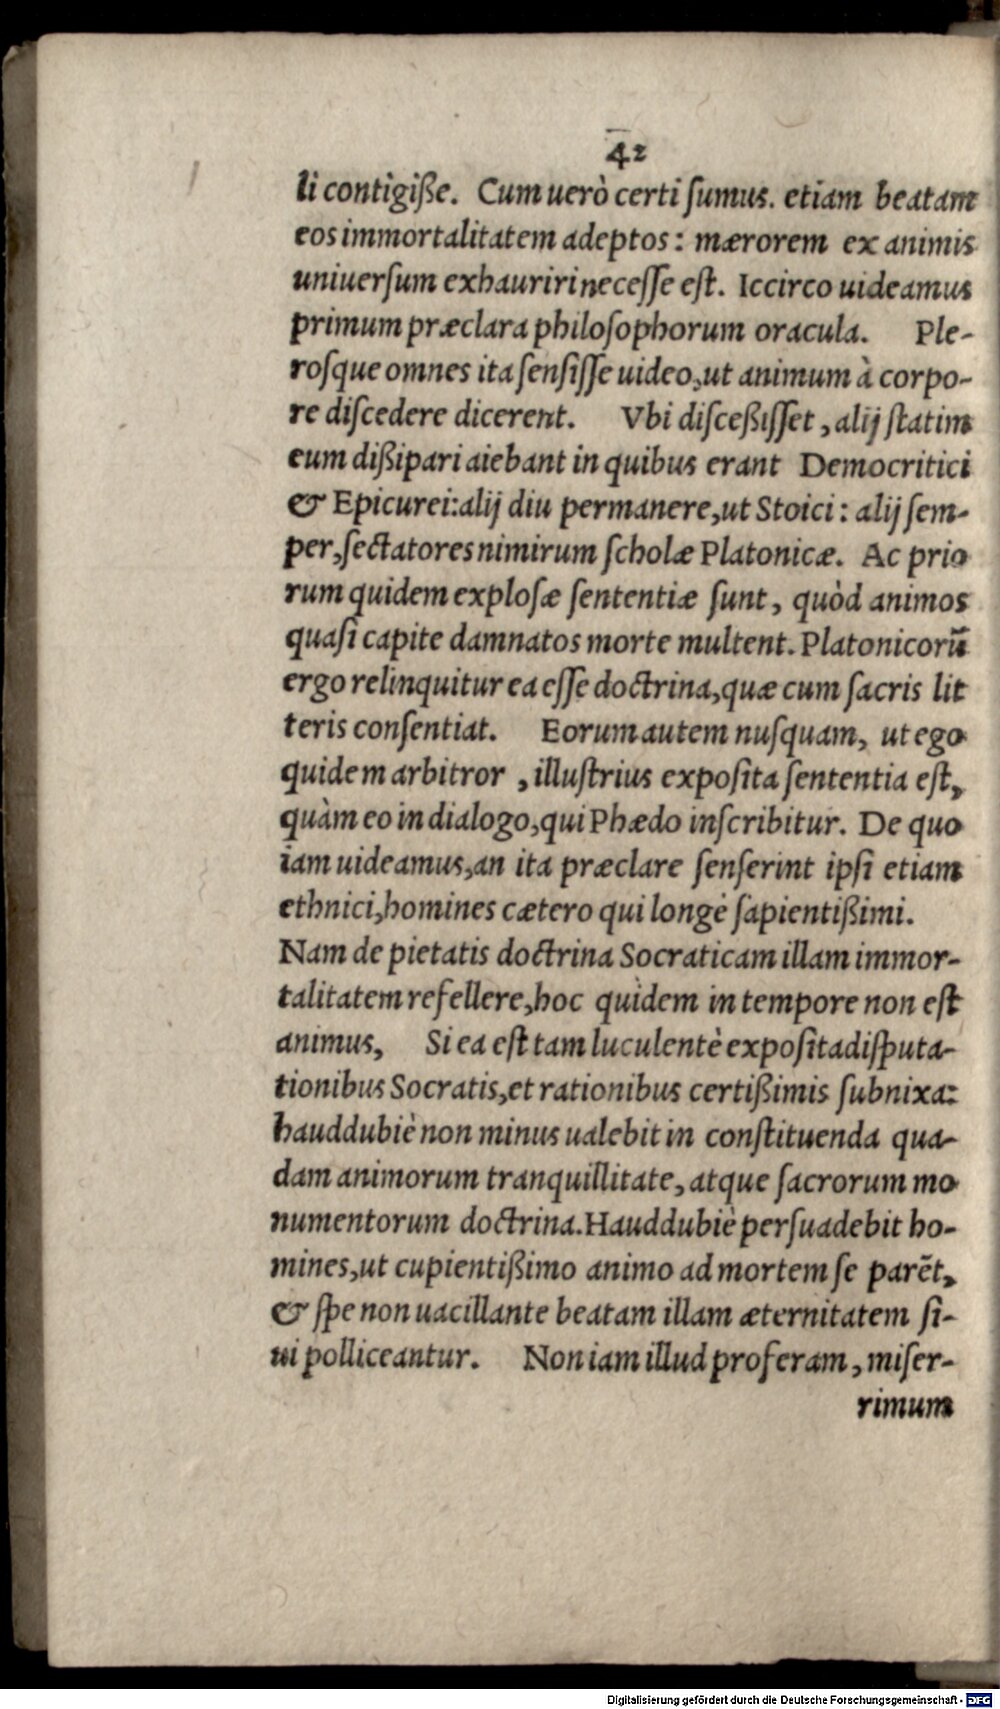 42
li contigiße. Cum uerò certi ſumus. etiam beatam
eos immortalitatem adeptos: mærorem ex animis
uniuerſum exhauriri neceſſe eſt. Iccirco uideamus
primum præclara philoſophorum oracula. Ple-
roſque omnes ita ſenſiſſe uideo, ut animum à corpo-
re diſcedere dicerent. Vbi diſceßiſſet, alij ſtatim
eum dißipari aiebant in quibus erant Democritici
& Epicurei: alij diu permanere, ut Stoici: alij ſem-
per, ſectatores nimirum ſcholæ Platonicæ. Ac prio
rum quidem exploſæ ſententiæ ſunt, quòd animos
quaſi capite damnatos morte multent. Platonicorũ
ergo relinquitur ea eſſe doctrina, quæ cum ſacris lit
teris conſentiat. Eorum autem nuſquam, ut ego
quidem arbitror, illuſtrius expoſita ſententia eſt,
quàm eo in dialogo, qui Phædo inſcribitur. De quo
iam uideamus, an ita præclare ſenſerint ipſi etiam
ethnici, homines cætero qui longè ſapientißimi.
Nam de pietatis doctrina Socraticam illam immor-
talitatem refellere, hoc quidem in tempore non eſt
animus, Si ea eſt tam luculentè expoſita diſputa-
tionibus Socratis, et rationibus certißimis ſubnixa:
hauddubiè non minus ualebit in conſtituenda qua-
dam animorum tranquillitate, atque ſacrorum mo
numentorum doctrina. Hauddubiè perſuadebit ho-
mines, ut cupientißimo animo ad mortem ſe parẽt,
& ſpe non uacillante beatam illam æternitatem ſi-
ui polliceantur. Non iam illud proferam, miſer-
rimum
Digitalisierung gefördert durch die Deutsche Forschungsgemeinschaft - DFG